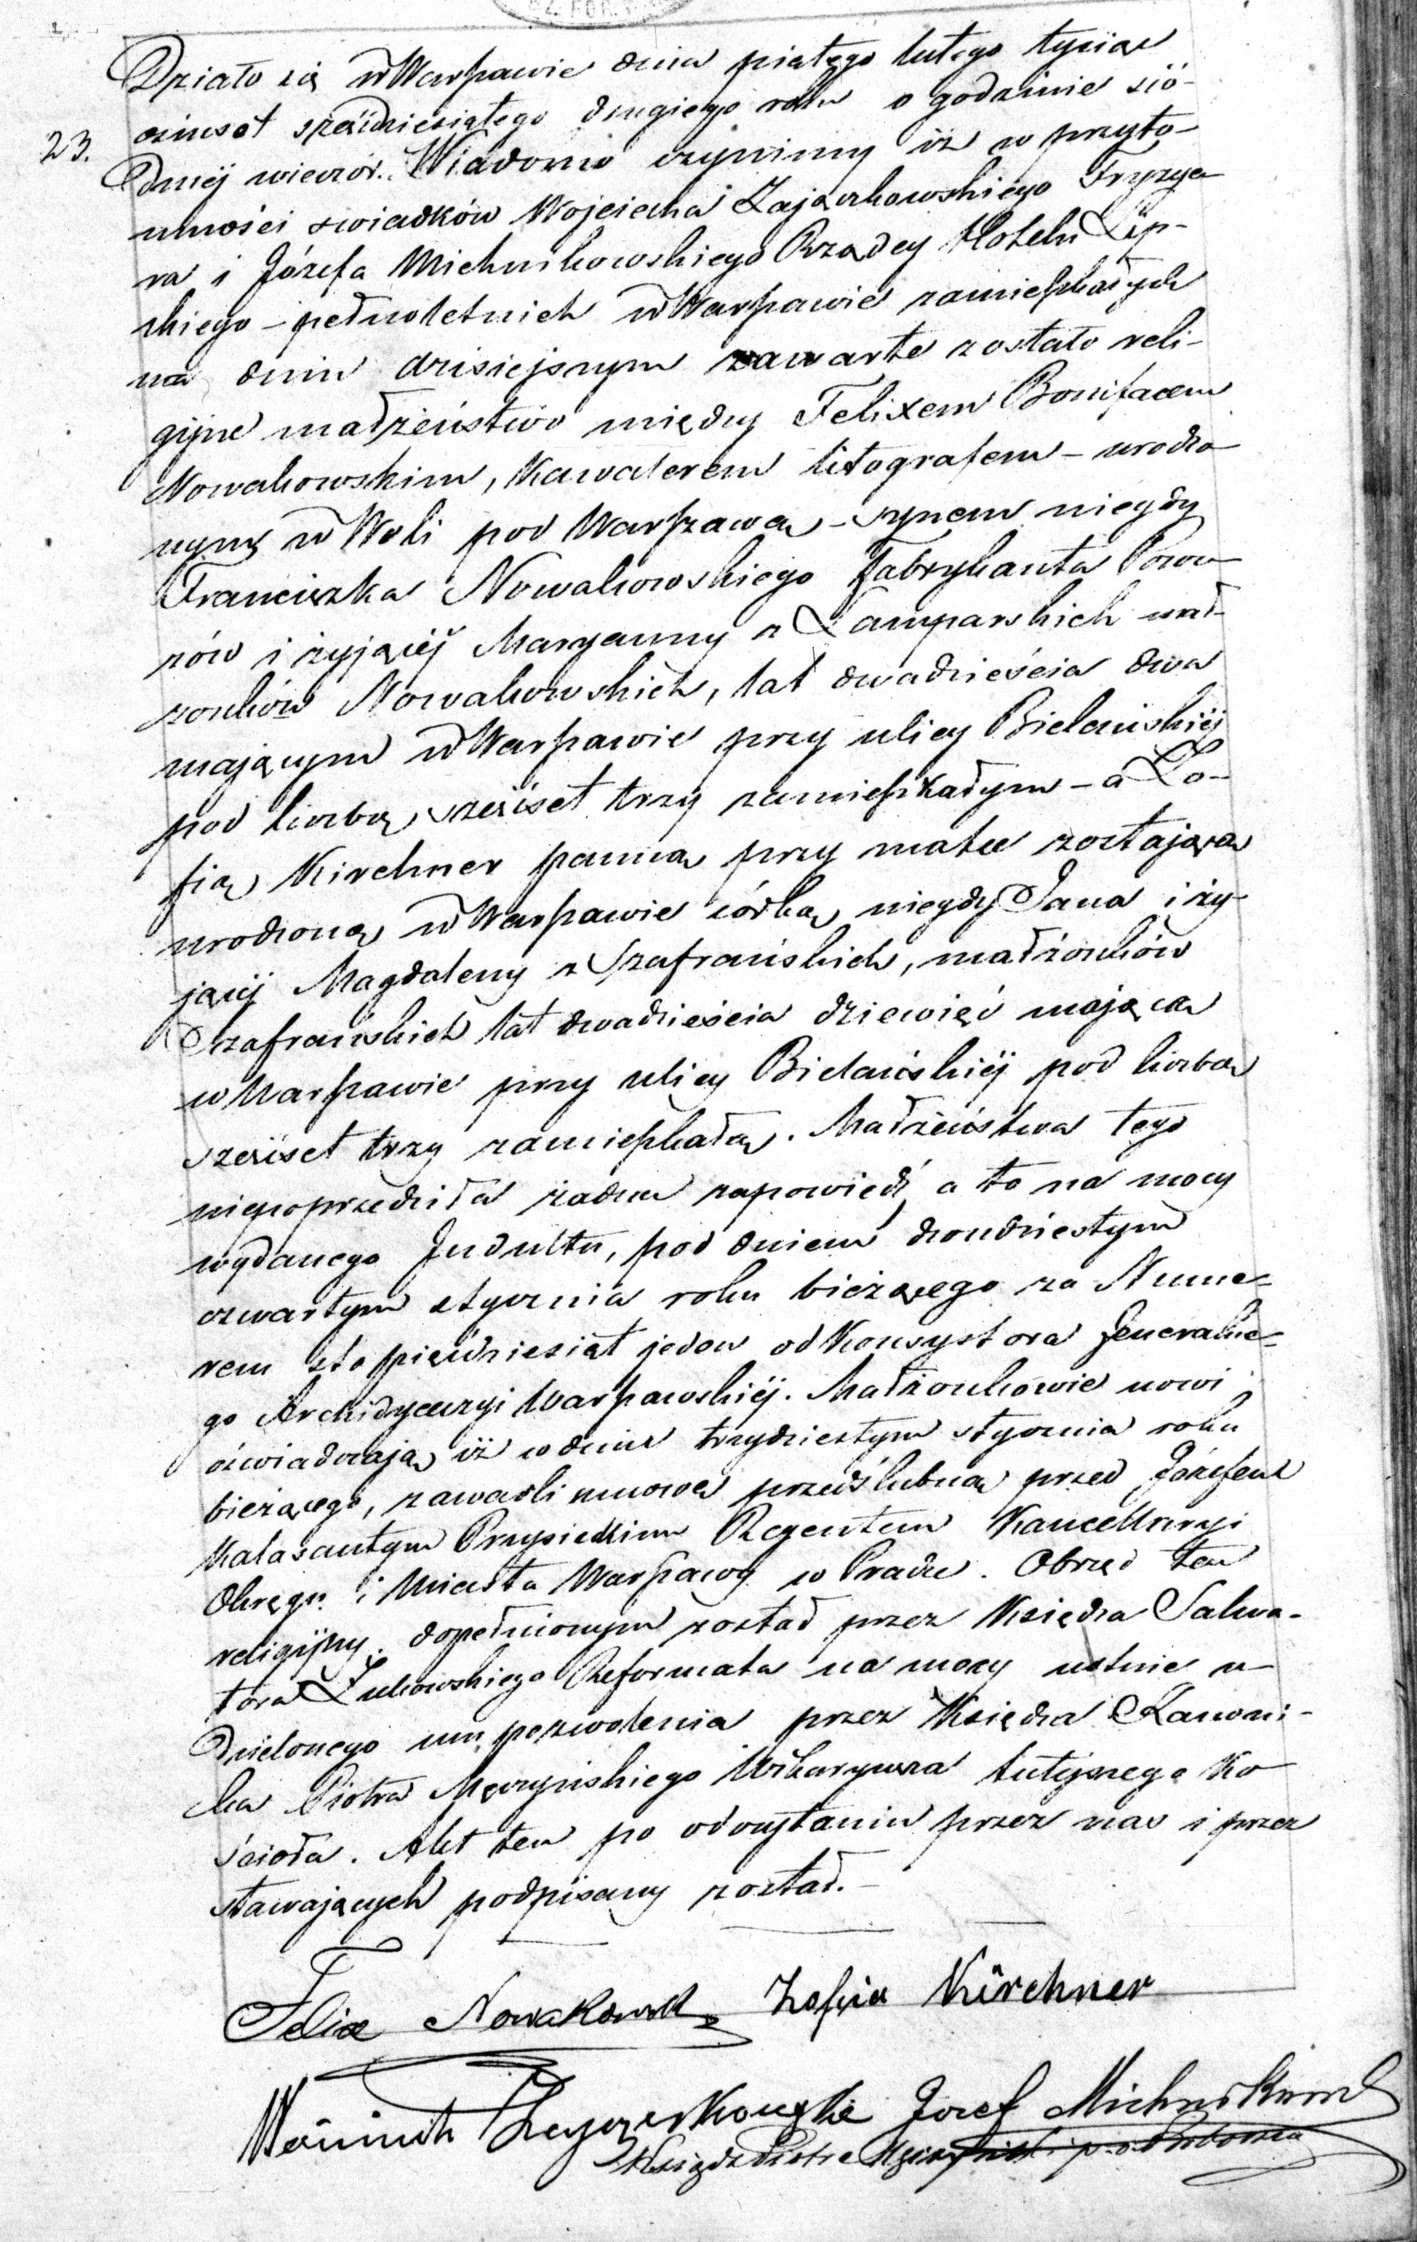 23.
Działo się w Warszawie dnia piątego lutego tysiąc
ośmset sześćdziesiątego drugiego roku o godzinie sió-
dméj wieczór. Wiadomo czynimy iż w przyto-
mności swiadków Wojciecha Zajączkowskiego Fryzye-
ra i Józefa Michnikowskiego Rządcy Hotelu Lip-
skiego – pełnoletnich w Warszawie zamieszkałych
na dniu dzisiejszym zawarte zostało reli-
gijne małżeństwo między Felixem Bonifacem
Nowakowskim, Kawalerem litografem – urodzo-
nym w Woli pod Warszawą – synem niegdy
Franciszka Nowakowskiego Fabrykanta Powo-
zów i żyjącéj Maryanny z Lamparskich mał-
żonków Nowakowskich, lat dwadzieścia dwa
mającym w Warszawie przy ulicy Bielańskiéj
pod liczbą sześćset trzy zamieszkałym – a Zo-
fią Kirchner panną przy matce zostającą
urodzoną w Warszawie córką niegdy Jana i ży-
jącéj Magdaleny z Szafrańskich, małżonków
Szafrańskich lat dwadzieścia dziewięć mającą
w Warszawie przy ulicy Bielańskiéj pod liczbą
sześćset trzy zamieszkałą. Małżeństwa tego
niepoprzedziła żadna zapowiedź, a to na mocy
wydanego Indultu, pod dniem dwudziestym
czwartym stycznia roku bieżącego za Nume-
rem sto pięćdziesiąt jeden od Konsystora Jeneralne-
go Archidyecezyi Warszawskiéj. Małżonkowie nowi
oświadczają iż w dniu trzydziestym stycznia roku
bieżącego, zawarli umowę przedślubną przed Józefem
Kalasantym Przysieckim Regentem Kancellaryi
Okręgu i Miasta Warszawy w Pradze. Obrzęd ten
religijny dopełnionym został przez Księdza Salwa-
tora Łukowskiego Reformata na mocy ustnie u-
dzielonego mu pozwolenia przez Księdza Kanoni-
ka Piotra Męczyńskiego Wikaryusza tutejszego Ko-
ścioła. Akt ten po odczytaniu przez nas i przez
stawających podpisany został. –
Felix Nowakowski Zofija Kirchner
Józef Michnikowski
Ksiądz Piotr